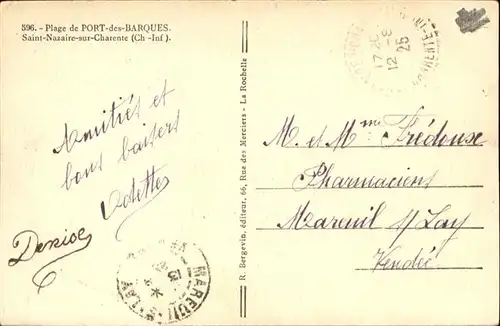 596. - Plage de PORT-des-BARQUES.
Saint-Nazaire-sur-Charente (Ch-Inf).
Amitiés et
bons baisers
Odette
Denise
R. Bergevin, éditeur, 66, Rue des Merciers - La Rochelle
17 20
12 -8
25
M. et Mme Frédouse
Pharmaciens
Mareuil s/ Lay
Vendée
MAREUIL S LAY